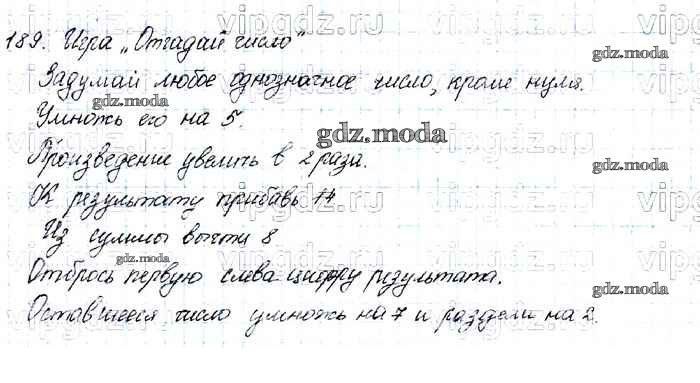 189. Игра „Отгадай число"
Задумай любое однозначное число, кроме нуля.
Умножь его на 5.
Произведение увеличь в 2 раза.
К результату прибавь 14
Из суммы вычти 8
Отбрось первую слева цифру результата.
Оставшееся число умножь на 7 и раздели на 2.
gdz.moda
vipgdz.ru